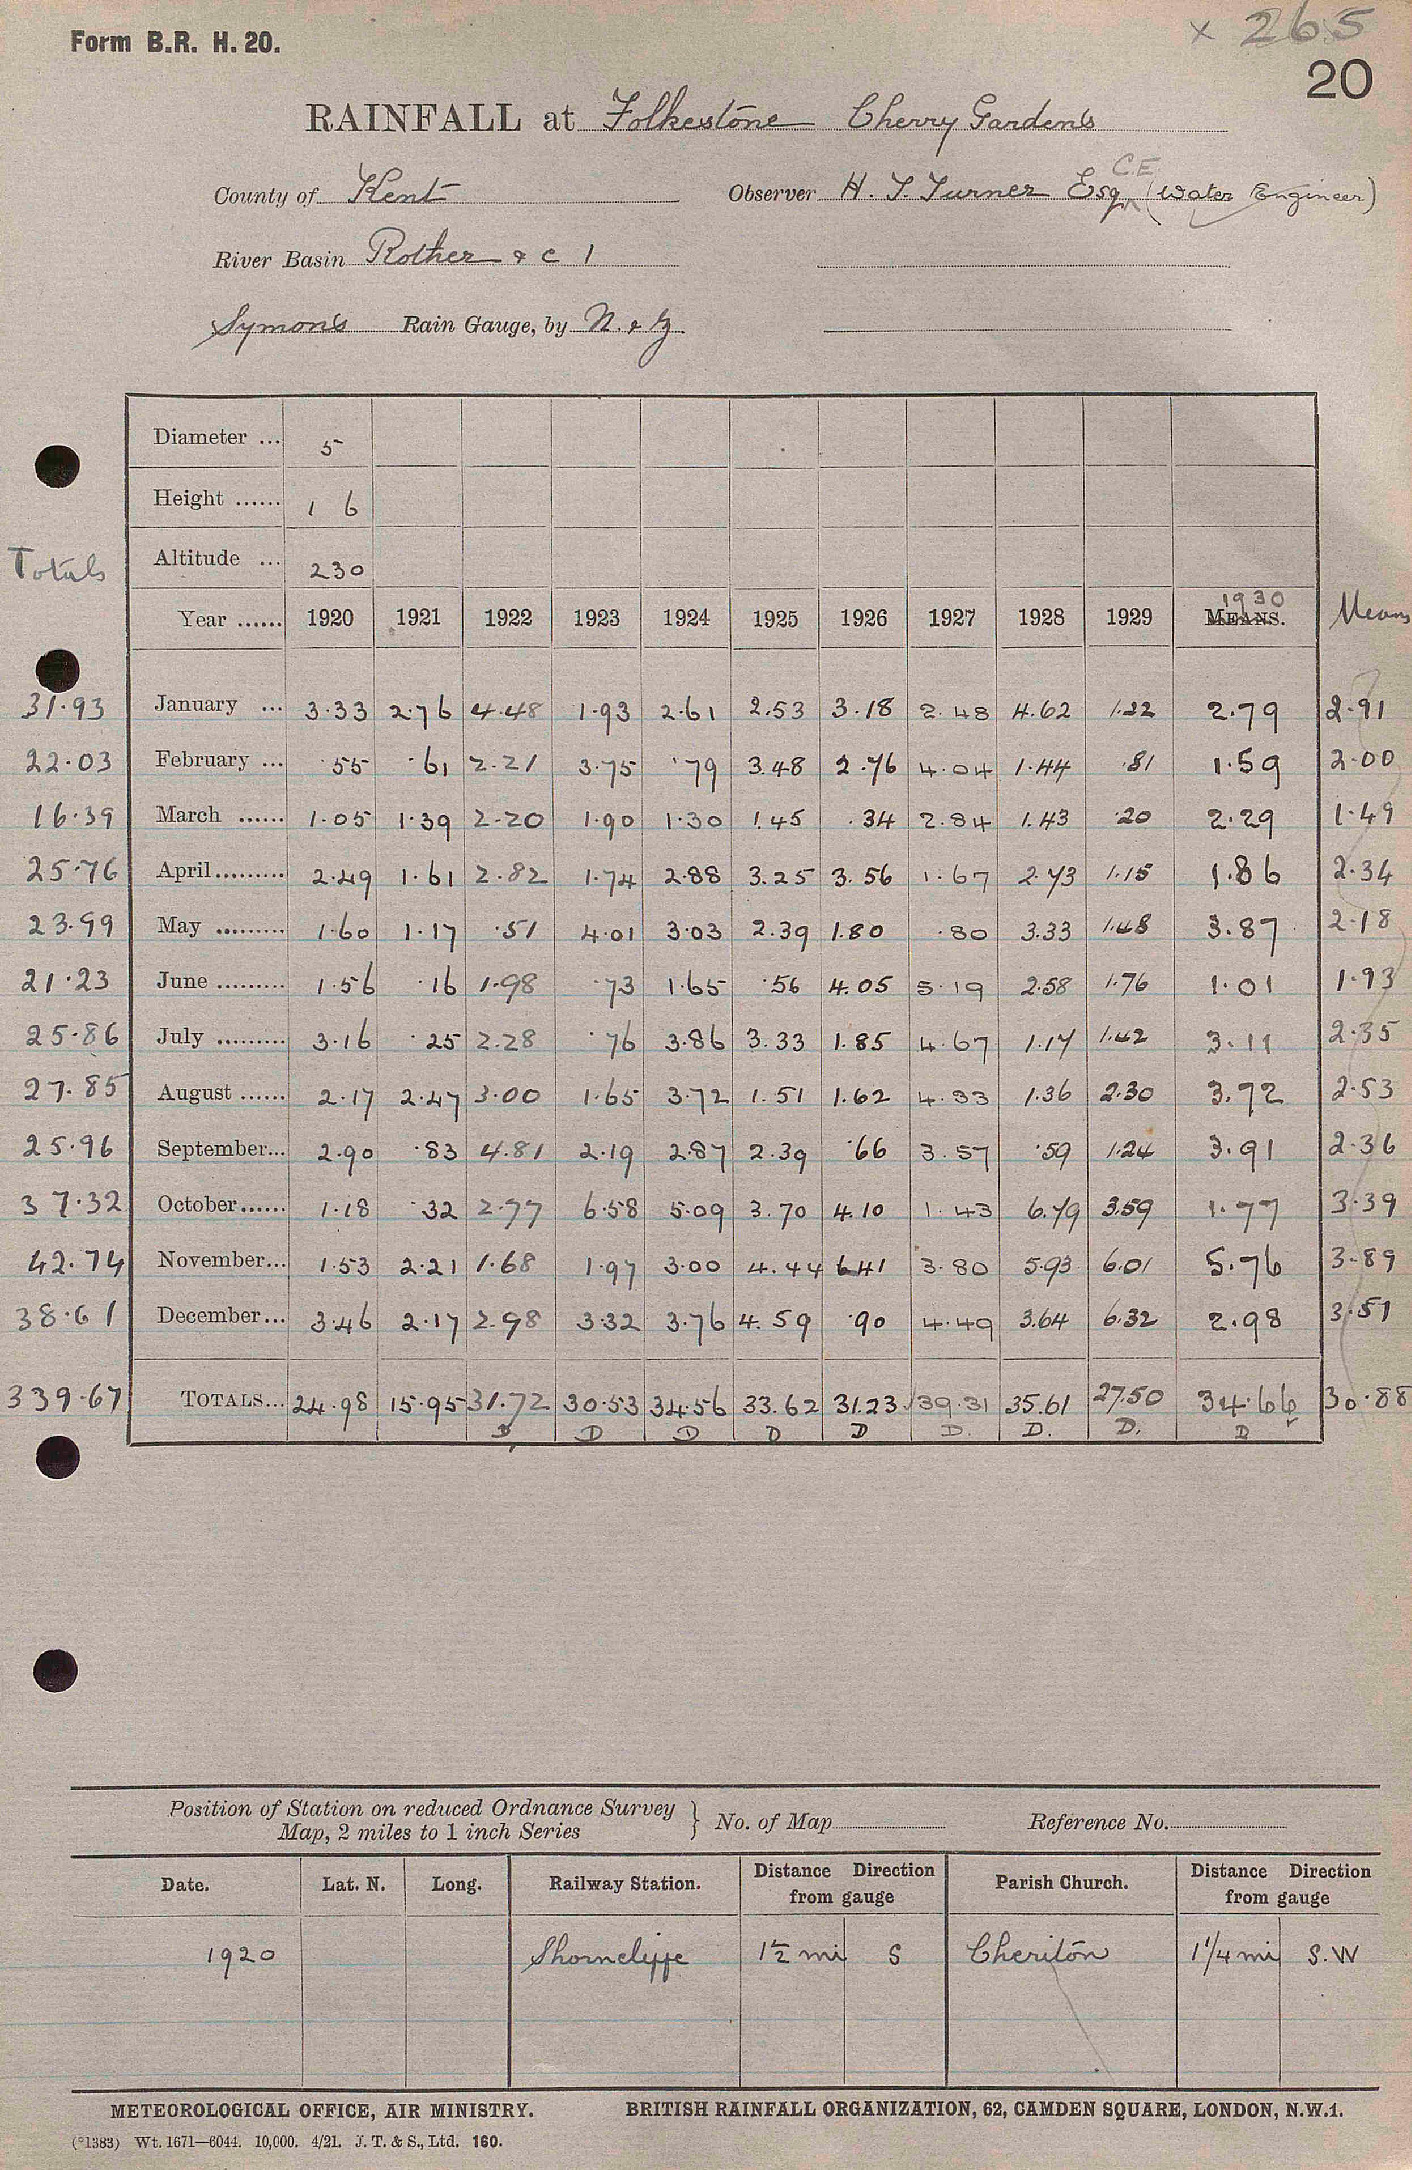 Form B.R. H. 20.
× 265
20
RAINFALL at Folkestone Cherry Gardens
C.E
County of Kent Observer H. T. Turner Esq. (Water Engineer)
River Basin Rother & c 1
Symon's Rain Gauge, by N. & Z
Diameter ... 5
Height ...... 1 6
Totals Altitude ... 230
1930
Year ...... 1920 1921 1922 1923 1924 1925 1926 1927 1928 1929 MEANS. Means
31.93 January ... 3.33 2.76 4.48 1.93 2.61 2.53 3.18 2.48 4.62 1.22 2.79 2.91
22.03 February ... .55 .61 2.21 3.75 .79 3.48 2.76 4.04 1.44 .81 1.59 2.00
16.39 March ...... 1.05 1.39 2.20 1.90 1.30 1.45 .34 2.84 1.43 .20 2.29 1.49
25.76 April......... 2.49 1.61 2.82 1.74 2.88 3.25 3.56 1.67 2.73 1.15 1.86 2.34
23.99 May ......... 1.60 1.17 .51 4.01 3.03 2.39 1.80 .80 3.33 1.48 3.87 2.18
21.23 June ......... 1.56 .16 1.98 .73 1.65 .56 4.05 5.19 2.58 1.76 1.01 1.93
25.86 July ......... 3.16 .25 2.28 .76 3.86 3.33 1.85 4.67 1.17 1.42 3.11 2.35
27.85 August ...... 2.17 2.47 3.00 1.65 3.72 1.51 1.62 4.33 1.36 2.30 3.72 2.53
25.96 September... 2.90 .83 4.81 2.19 2.87 2.39 .66 3.57 .59 1.24 3.91 2.36
37.32 October...... 1.18 .32 2.77 6.58 5.09 3.70 4.10 1.43 6.79 3.59 1.77 3.39
42.74 November... 1.53 2.21 1.68 1.97 3.00 4.44 6.41 3.80 5.93 6.01 5.76 3.89
38.61 December... 3.46 2.17 2.98 3.32 3.76 4.59 .90 4.49 3.64 6.32 2.98 3.51
339.67 TOTALS... 24.98 15.95 31.72 30.53 34.56 33.62 31.23 39.31 35.61 27.50 34.66 30.88
D D D D D D. D. D. D
Position of Station on reduced Ordnance Survey
Map, 2 miles to 1 inch Series } No. of Map Reference No.
Date. Lat. N. Long. Railway Station. Distance Direction from gauge Parish Church. Distance Direction from gauge
1920 Shorncliffe 1½ mi S Cheriton 1 1/4 mi S.W
METEOROLOGICAL OFFICE, AIR MINISTRY. BRITISH RAINFALL ORGANIZATION, 62, CAMDEN SQUARE, LONDON, N.W.1.
(*1383) Wt. 1671—6044. 10,000. 4/21. J. T. & S., Ltd. 160.